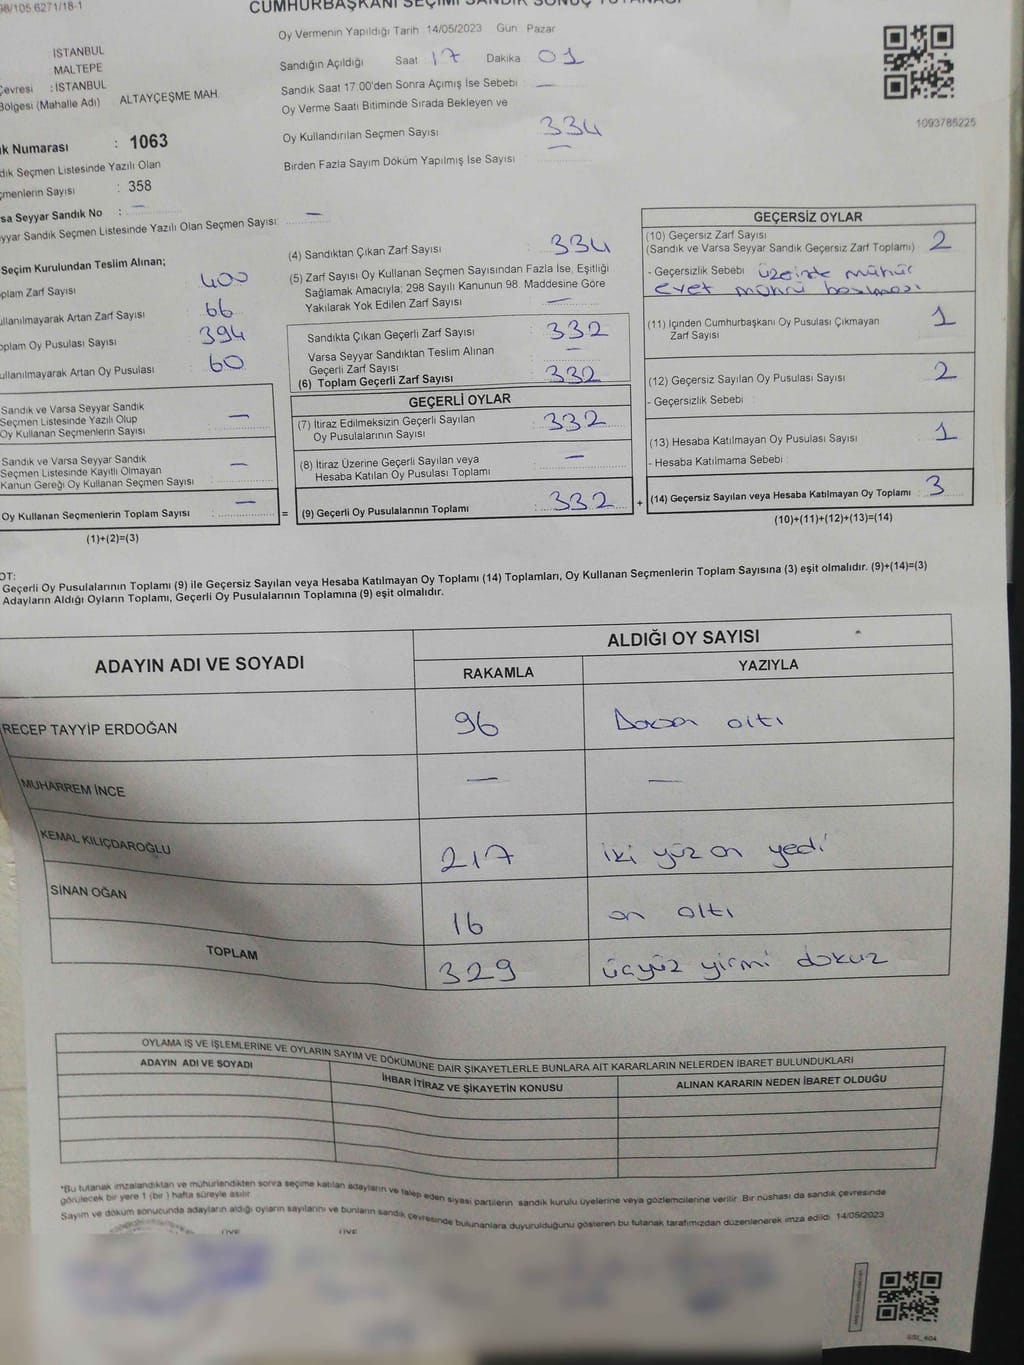 98/105.6271/18-1
CUMHURBAŞKANI SEÇİMİ SANDIK SONUÇ TUTANAĞI
Oy Vermenin Yapıldığı Tarih :14/05/2023 Gün Pazar
Sandığın Açıldığı Saat 17 Dakika 01
Sandık Saat 17.00'den Sonra Açımış İse Sebebi : —
Oy Verme Saati Bitiminde Sırada Bekleyen ve
Oy Kullandırılan Seçmen Sayısı 334
Birden Fazla Sayım Döküm Yapılmış İse Sayısı : —
1093785225
İSTANBUL
MALTEPE
Çevresi : İSTANBUL
Bölgesi (Mahalle Adı) ALTAYÇEŞME MAH.
k Numarası : 1063
dık Seçmen Listesinde Yazılı Olan
çmenlerin Sayısı : 358
sa Seyyar Sandık No : —
yyar Sandık Seçmen Listesinde Yazılı Olan Seçmen Sayısı: —
Seçim Kurulundan Teslim Alınan;
plam Zarf Sayısı 400
ullanılmayarak Artan Zarf Sayısı 66
oplam Oy Pusulası Sayısı 394
ullanılmayarak Artan Oy Pusulası 60
Sandık ve Varsa Seyyar Sandık
Seçmen Listesinde Yazılı Olup
Oy Kullanan Seçmenlerin Sayısı —
Sandık ve Varsa Seyyar Sandık
Seçmen Listesinde Kayıtlı Olmayan
Kanun Gereği Oy Kullanan Seçmen Sayısı —
Oy Kullanan Seçmenlerin Toplam Sayısı : — =
(1)+(2)=(3)
(4) Sandıktan Çıkan Zarf Sayısı : 334
(5) Zarf Sayısı Oy Kullanan Seçmen Sayısından Fazla İse, Eşitliği
Sağlamak Amacıyla; 298 Sayılı Kanunun 98. Maddesine Göre
Yakılarak Yok Edilen Zarf Sayısı : —
Sandıkta Çıkan Geçerli Zarf Sayısı : 332
Varsa Seyyar Sandıktan Teslim Alınan
Geçerli Zarf Sayısı : —
(6) Toplam Geçerli Zarf Sayısı : 332
GEÇERLİ OYLAR
(7) İtiraz Edilmeksizin Geçerli Sayılan
Oy Pusulalarının Sayısı : 332
(8) İtiraz Üzerine Geçerli Sayılan veya
Hesaba Katılan Oy Pusulası Toplamı : —
(9) Geçerli Oy Pusulalarının Toplamı : 332 +
GEÇERSİZ OYLAR
(10) Geçersiz Zarf Sayısı
(Sandık ve Varsa Seyyar Sandık Geçersiz Zarf Toplamı) : 2
- Geçersizlik Sebebi : üzerinde mühür
evet mührü basılması
(11) İçinden Cumhurbaşkanı Oy Pusulası Çıkmayan
Zarf Sayısı 1
(12) Geçersiz Sayılan Oy Pusulası Sayısı 2
- Geçersizlik Sebebi :
(13) Hesaba Katılmayan Oy Pusulası Sayısı 1
- Hesaba Katılmama Sebebi :
(14) Geçersiz Sayılan veya Hesaba Katılmayan Oy Toplamı : 3
(10)+(11)+(12)+(13)=(14)
OT:
Geçerli Oy Pusulalarının Toplamı (9) ile Geçersiz Sayılan veya Hesaba Katılmayan Oy Toplamı (14) Toplamları, Oy Kullanan Seçmenlerin Toplam Sayısına (3) eşit olmalıdır. (9)+(14)=(3)
Adayların Aldığı Oyların Toplamı, Geçerli Oy Pusulalarının Toplamına (9) eşit olmalıdır.
ADAYIN ADI VE SOYADI
ALDIĞI OY SAYISI
RAKAMLA YAZIYLA
RECEP TAYYİP ERDOĞAN 96 Doksan altı
MUHARREM İNCE — —
KEMAL KILIÇDAROĞLU 217 iki yüz on yedi
SİNAN OĞAN 16 on altı
TOPLAM 329 üçyüz yirmi dokuz
OYLAMA İŞ VE İŞLEMLERİNE VE OYLARIN SAYIM VE DÖKÜMÜNE DAİR ŞİKAYETLERLE BUNLARA AİT KARARLARIN NELERDEN İBARET BULUNDUKLARI
ADAYIN ADI VE SOYADI İHBAR İTİRAZ VE ŞİKAYETİN KONUSU ALINAN KARARIN NEDEN İBARET OLDUĞU
*Bu tutanak imzalandıktan ve mühürlendikten sonra seçime katılan adayların ve talep eden siyasi partilerin sandık kurulu üyelerine veya gözlemcilerine verilir. Bir nüshası da sandık çevresinde
görülecek bir yere 1 (bir ) hafta süreyle asılır.
Sayım ve döküm sonucunda adayların aldığı oyların sayılarını ve bunların sandık çevresinde bulunanlara duyurulduğunu gösteren bu tutanak tarafımızdan düzenlenerek imza edildi. 14/05/2023
ÜYE ÜYE